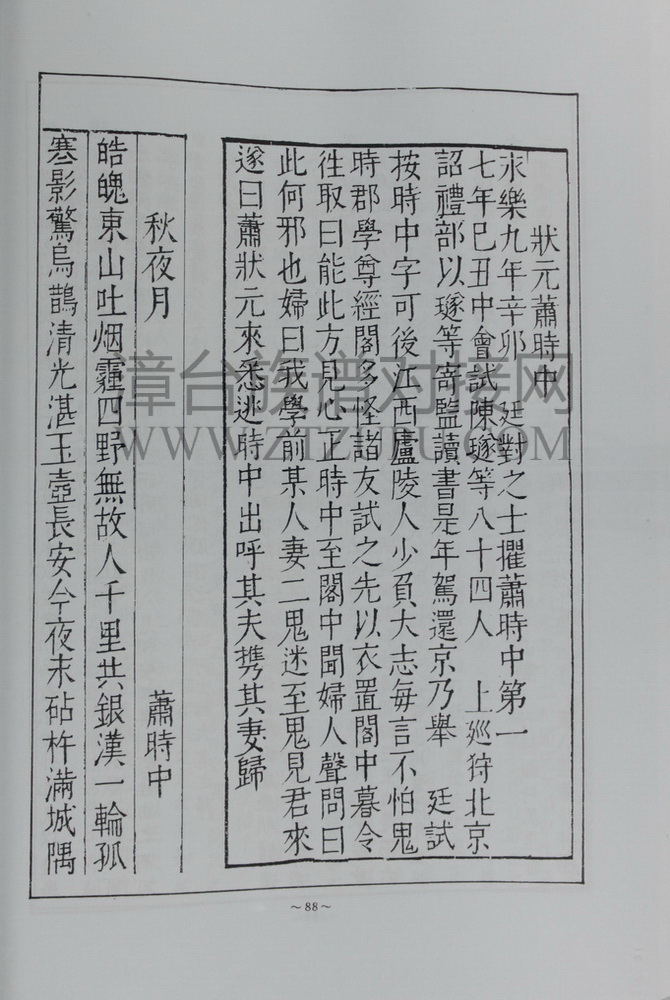 狀元蕭時中
永樂九年辛卯 廷對之士擢蕭時中第一
七年己丑中會試陳璲等八十四人 上廵狩北京
詔禮部以璲等寄監讀書是年駕還京乃舉 廷試
按時中字可後江西盧陵人少負大志每言不怕鬼
時郡學尊經閣多怪諸友試之先以衣置閣中暮令
徃取曰能此方見心正時中至閣中聞婦人聲問曰
此何邪也婦曰我學前某人妻二鬼迷至鬼見君來
遂曰蕭狀元來悉逃時中出呼其夫擕其妻歸
秋夜月 蕭時中
皓魄東山吐烟霾四野無故人千里共銀漢一輪孤
寒影驚烏鵲清光湛玉壺長安今夜末砧杵滿城隅
漳台族谱对接网
WWW.ZTZUPU.COM
～88～